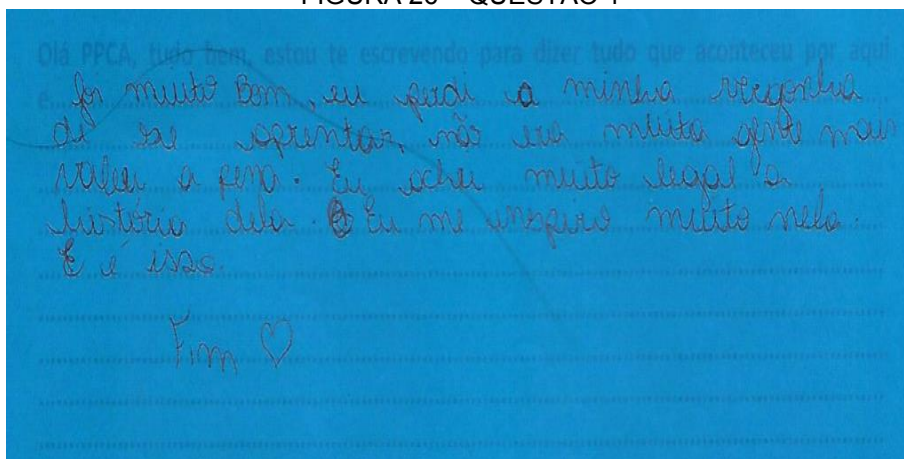 FIGURA 26 – QUESTÃO 4
Olá PPCA, tudo bem, estou te escrevendo para dizer tudo que aconteceu por aqui
e... foi muito Bom, eu perdi a minha vergonha
de se aprentar, não era muita gente mais
valeu a pena. Eu achei muito legal a
história dela. Eu me inspiro muito nela.
E é isso.
Fim ♡